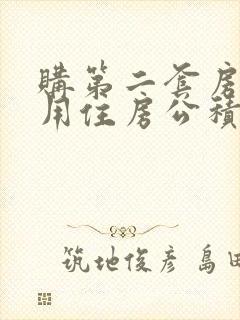 購第二套房
用住房公積
筑地俊彦 島田